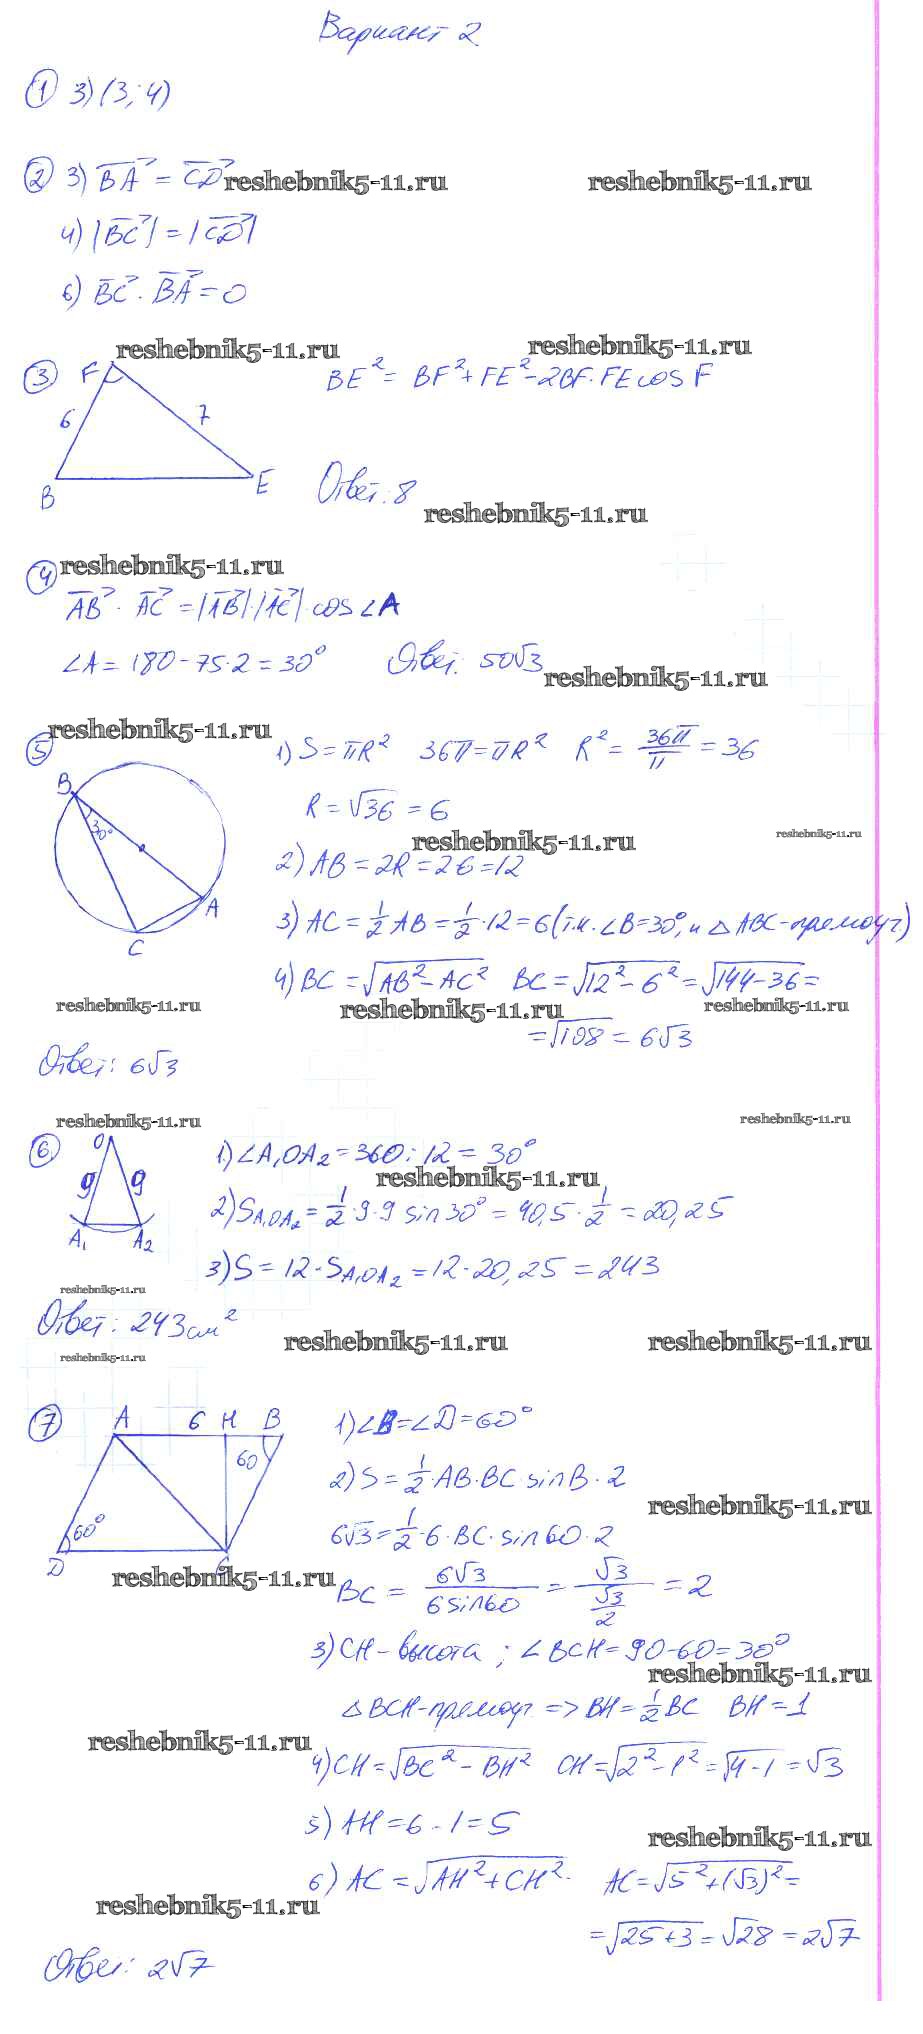 Вариант 2
1 3) (3; 4)
2 3) BA = CD
reshebnik5-11.ru reshebnik5-11.ru
4) |BC| = |CD|
6) BC · BA = 0
reshebnik5-11.ru reshebnik5-11.ru
3 F 6 7 B E
BE² = BF² + FE² - 2BF · FE cos F
Ответ: 8
reshebnik5-11.ru
4 reshebnik5-11.ru
AB · AC = |AB| · |AC| · cos ∠A
∠A = 180 - 75 · 2 = 30° Ответ: 50√3
reshebnik5-11.ru
reshebnik5-11.ru
5 B 30° A C
1) S = πR² 36π = πR² R² = 36π/π = 36
R = √36 = 6
reshebnik5-11.ru reshebnik5-11.ru
2) AB = 2R = 2·6 = 12
3) AC = 1/2 AB = 1/2 · 12 = 6 (т.к. ∠B = 30°, и △ABC - прямоуг)
4) BC = √(AB² - AC²) BC = √(12² - 6²) = √(144 - 36) =
reshebnik5-11.ru reshebnik5-11.ru reshebnik5-11.ru
= √108 = 6√3
Ответ: 6√3
reshebnik5-11.ru reshebnik5-11.ru
6 O 9 9 A₁ A₂
1) ∠A₁OA₂ = 360 : 12 = 30°
reshebnik5-11.ru
2) S A₁OA₂ = 1/2 · 9 · 9 sin 30° = 40,5 · 1/2 = 20,25
3) S = 12 · S A₁OA₂ = 12 · 20,25 = 243
reshebnik5-11.ru
Ответ: 243 см²
reshebnik5-11.ru reshebnik5-11.ru
reshebnik5-11.ru
7 A 6 H B 60 60° D C
1) ∠B = ∠D = 60°
2) S = 1/2 · AB · BC · sin B · 2
reshebnik5-11.ru
6√3 = 1/2 · 6 · BC · sin 60 · 2
reshebnik5-11.ru
BC = 6√3/6 sin 60 = √3/(√3/2) = 2
3) CH - высота ; ∠BCH = 90 - 60 = 30°
reshebnik5-11.ru
△BCH - прямоуг => BH = 1/2 BC BH = 1
reshebnik5-11.ru
4) CH = √(BC² - BH²) CH = √(2² - 1²) = √(4 - 1) = √3
5) AH = 6 - 1 = 5
reshebnik5-11.ru
6) AC = √(AH² + CH²) · AC = √(5² + (√3)²) =
reshebnik5-11.ru
= √(25 + 3) = √28 = 2√7
Ответ: 2√7